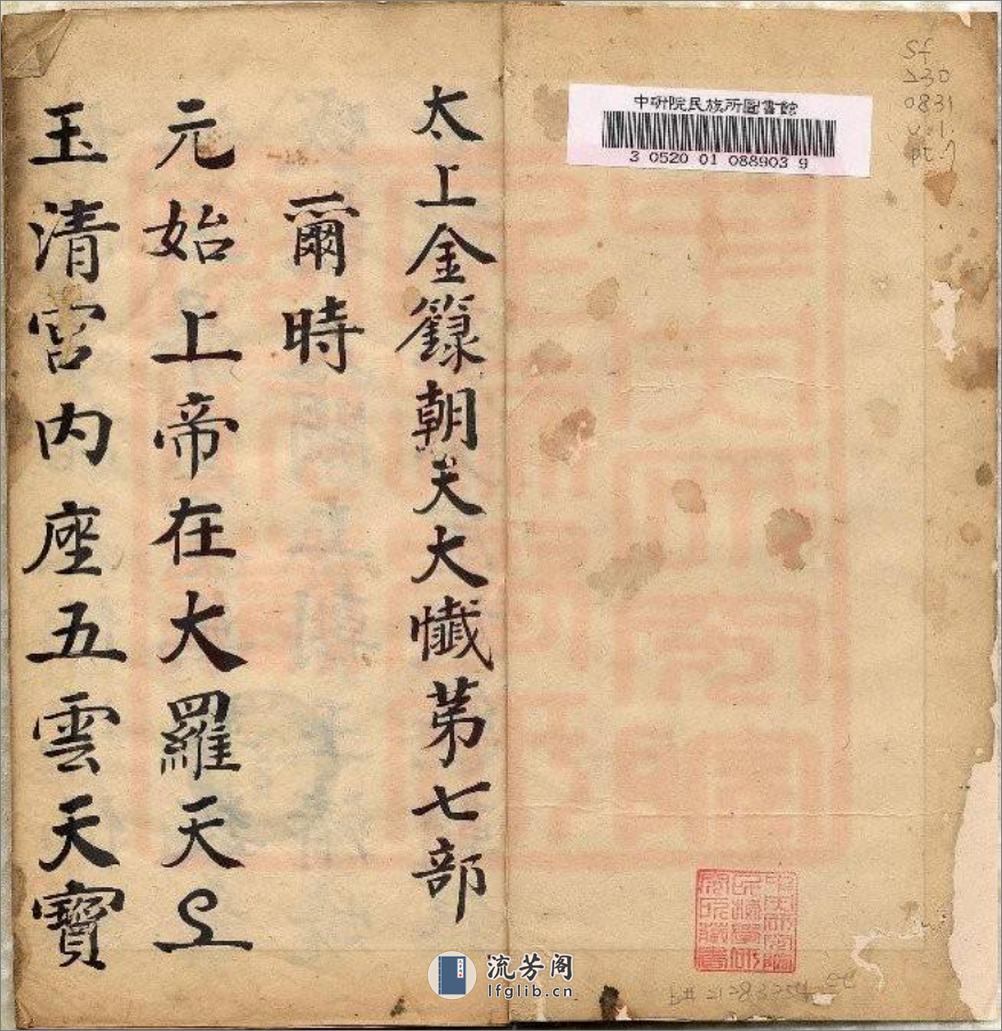 Sf
230
0831
v.1.
pt.7
中研院民族所圖書館
3 0520 01 088903 9
太上金籙朝天大懺第七部
爾時
元始上帝在大羅天上
玉清宮內座五雲天寶
流芳阁
lfglib.cn